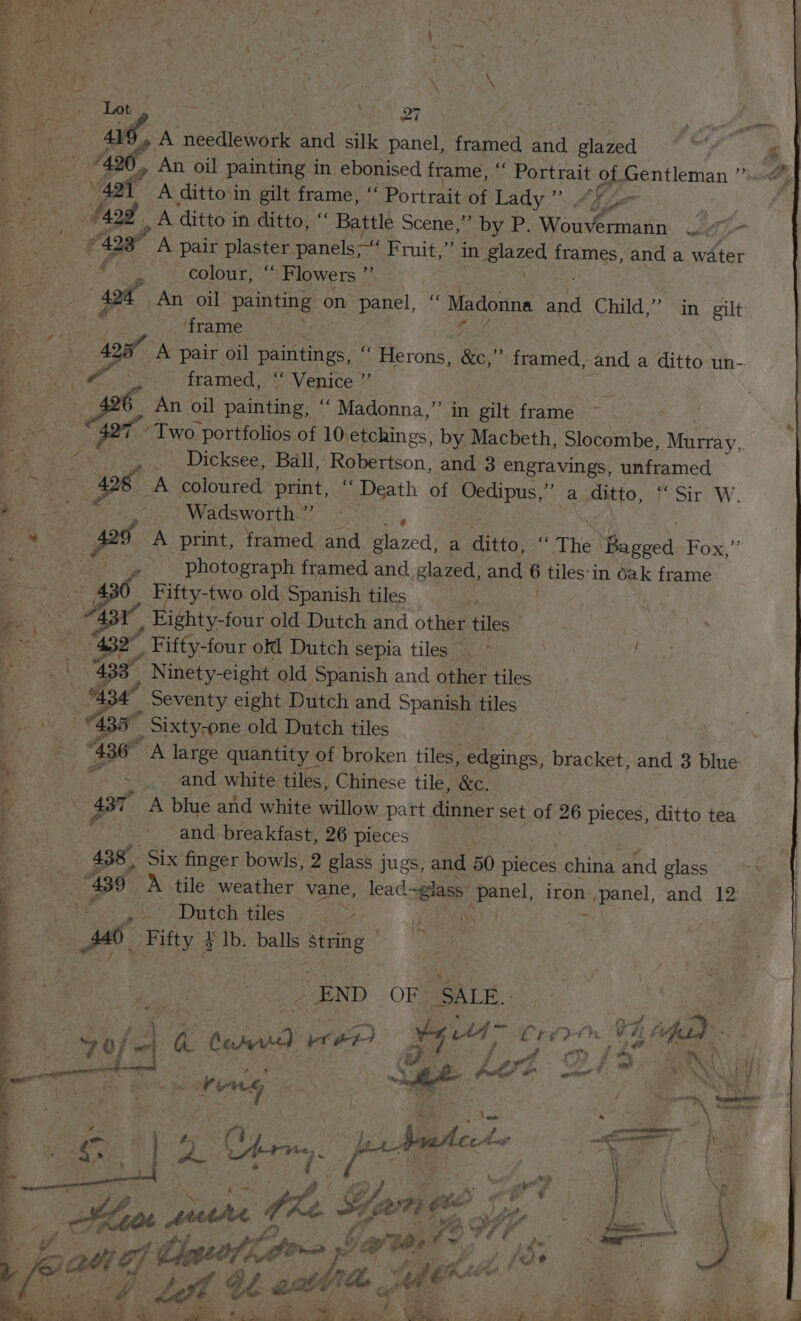 Lot
27
419, A needlework and silk panel, framed and glazed
420, An oil painting in ebonised frame, “ Portrait of Gentleman ”
421 A ditto in gilt frame, “ Portrait of Lady ”
422, A ditto in ditto, “ Battle Scene,” by P. Wouvermann
423 A pair plaster panels, “ Fruit,” in glazed frames, and a water
colour, “ Flowers ”
424 An oil painting on panel, “ Madonna and Child,” in gilt
frame
425 A pair oil paintings, “ Herons, &c,” framed, and a ditto un-
framed, “ Venice ”
426 An oil painting, “ Madonna,” in gilt frame
427 Two portfolios of 10 etchings, by Macbeth, Slocombe, Murray,
Dicksee, Ball, Robertson, and 3 engravings, unframed
428 A coloured print, “ Death of Oedipus,” a ditto, “ Sir W.
Wadsworth ”
429 A print, framed and glazed, a ditto, “ The Bagged Fox,”
photograph framed and glazed, and 6 tiles in oak frame
430 Fifty-two old Spanish tiles
431, Eighty-four old Dutch and other tiles
432, Fifty-four old Dutch sepia tiles
433 Ninety-eight old Spanish and other tiles
434 Seventy eight Dutch and Spanish tiles
435 Sixty-one old Dutch tiles
436 A large quantity of broken tiles, edgings, bracket, and 3 blue
and white tiles, Chinese tile, &c.
437 A blue and white willow part dinner set of 26 pieces, ditto tea
and breakfast, 26 pieces
438, Six finger bowls, 2 glass jugs, and 50 pieces china and glass
439 A tile weather vane, lead-glass panel, iron panel, and 12
Dutch tiles
440 Fifty ½ lb. balls string
END OF SALE.
70/- A Carved
See Lot
2
the